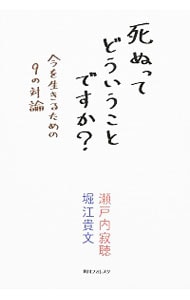 死ぬって
どういうこと
ですか?
今を生きるための
9の対論
瀬戸内寂聴
堀江貴文
角川フォレスタ